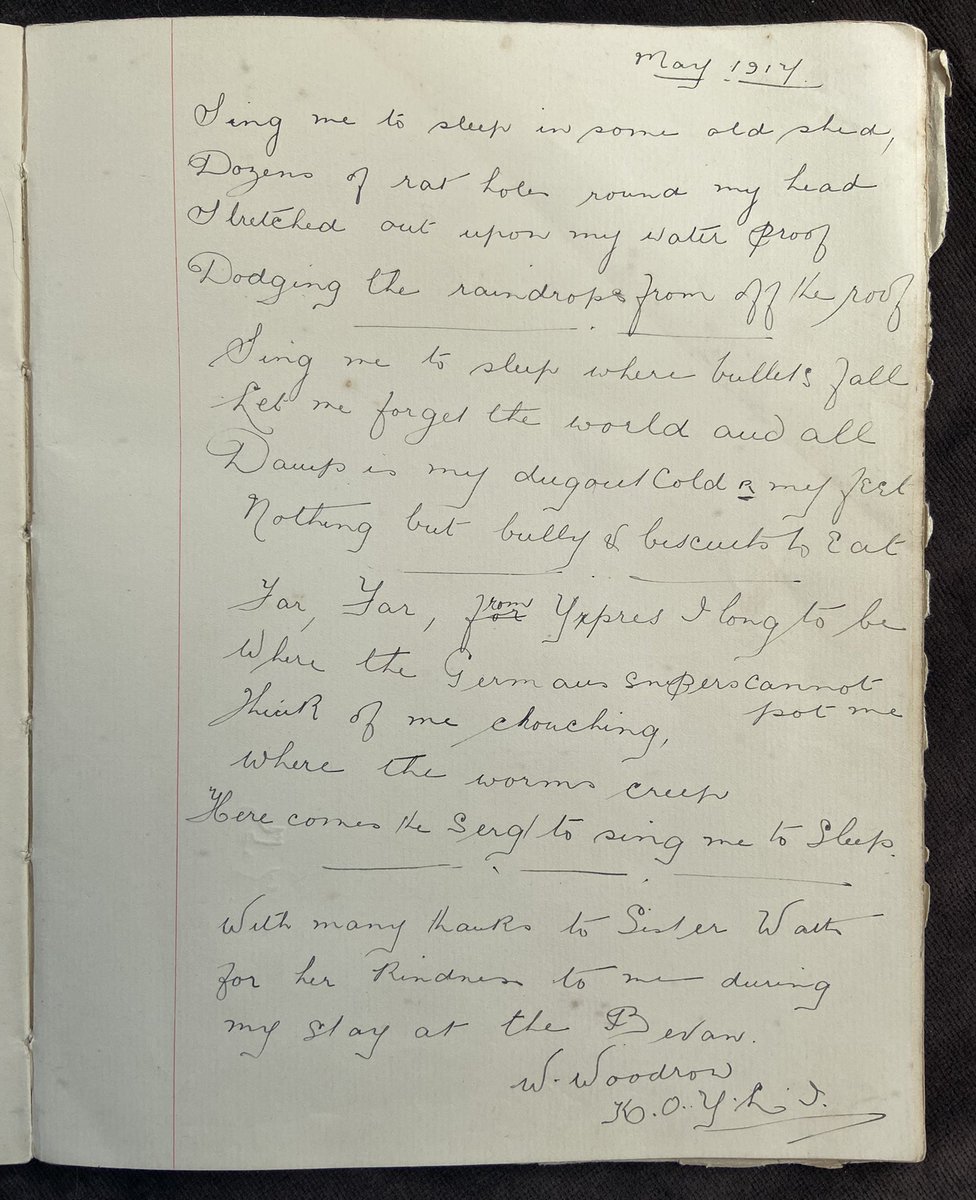 May 1917.
Sing me to sleep in some old shed,
Dozens of rat holes round my head
Stretched out upon my water proof
Dodging the raindrops from off the roof
Sing me to sleep where bullets fall
Let me forget the world and all
Damp is my dugout Cold R my feet
Nothing but bully & biscuits to Eat
Far, Far, from Ypres I long to be
Where the Germans snipers cannot
pot me
Think of me crouching,
where the worms creep
Here comes the Sergt to sing me to Sleep.
With many thanks to Sister
for her Kindness to me during
my stay at the Bevan.
W. Woodrow
K.O.Y.L.I.